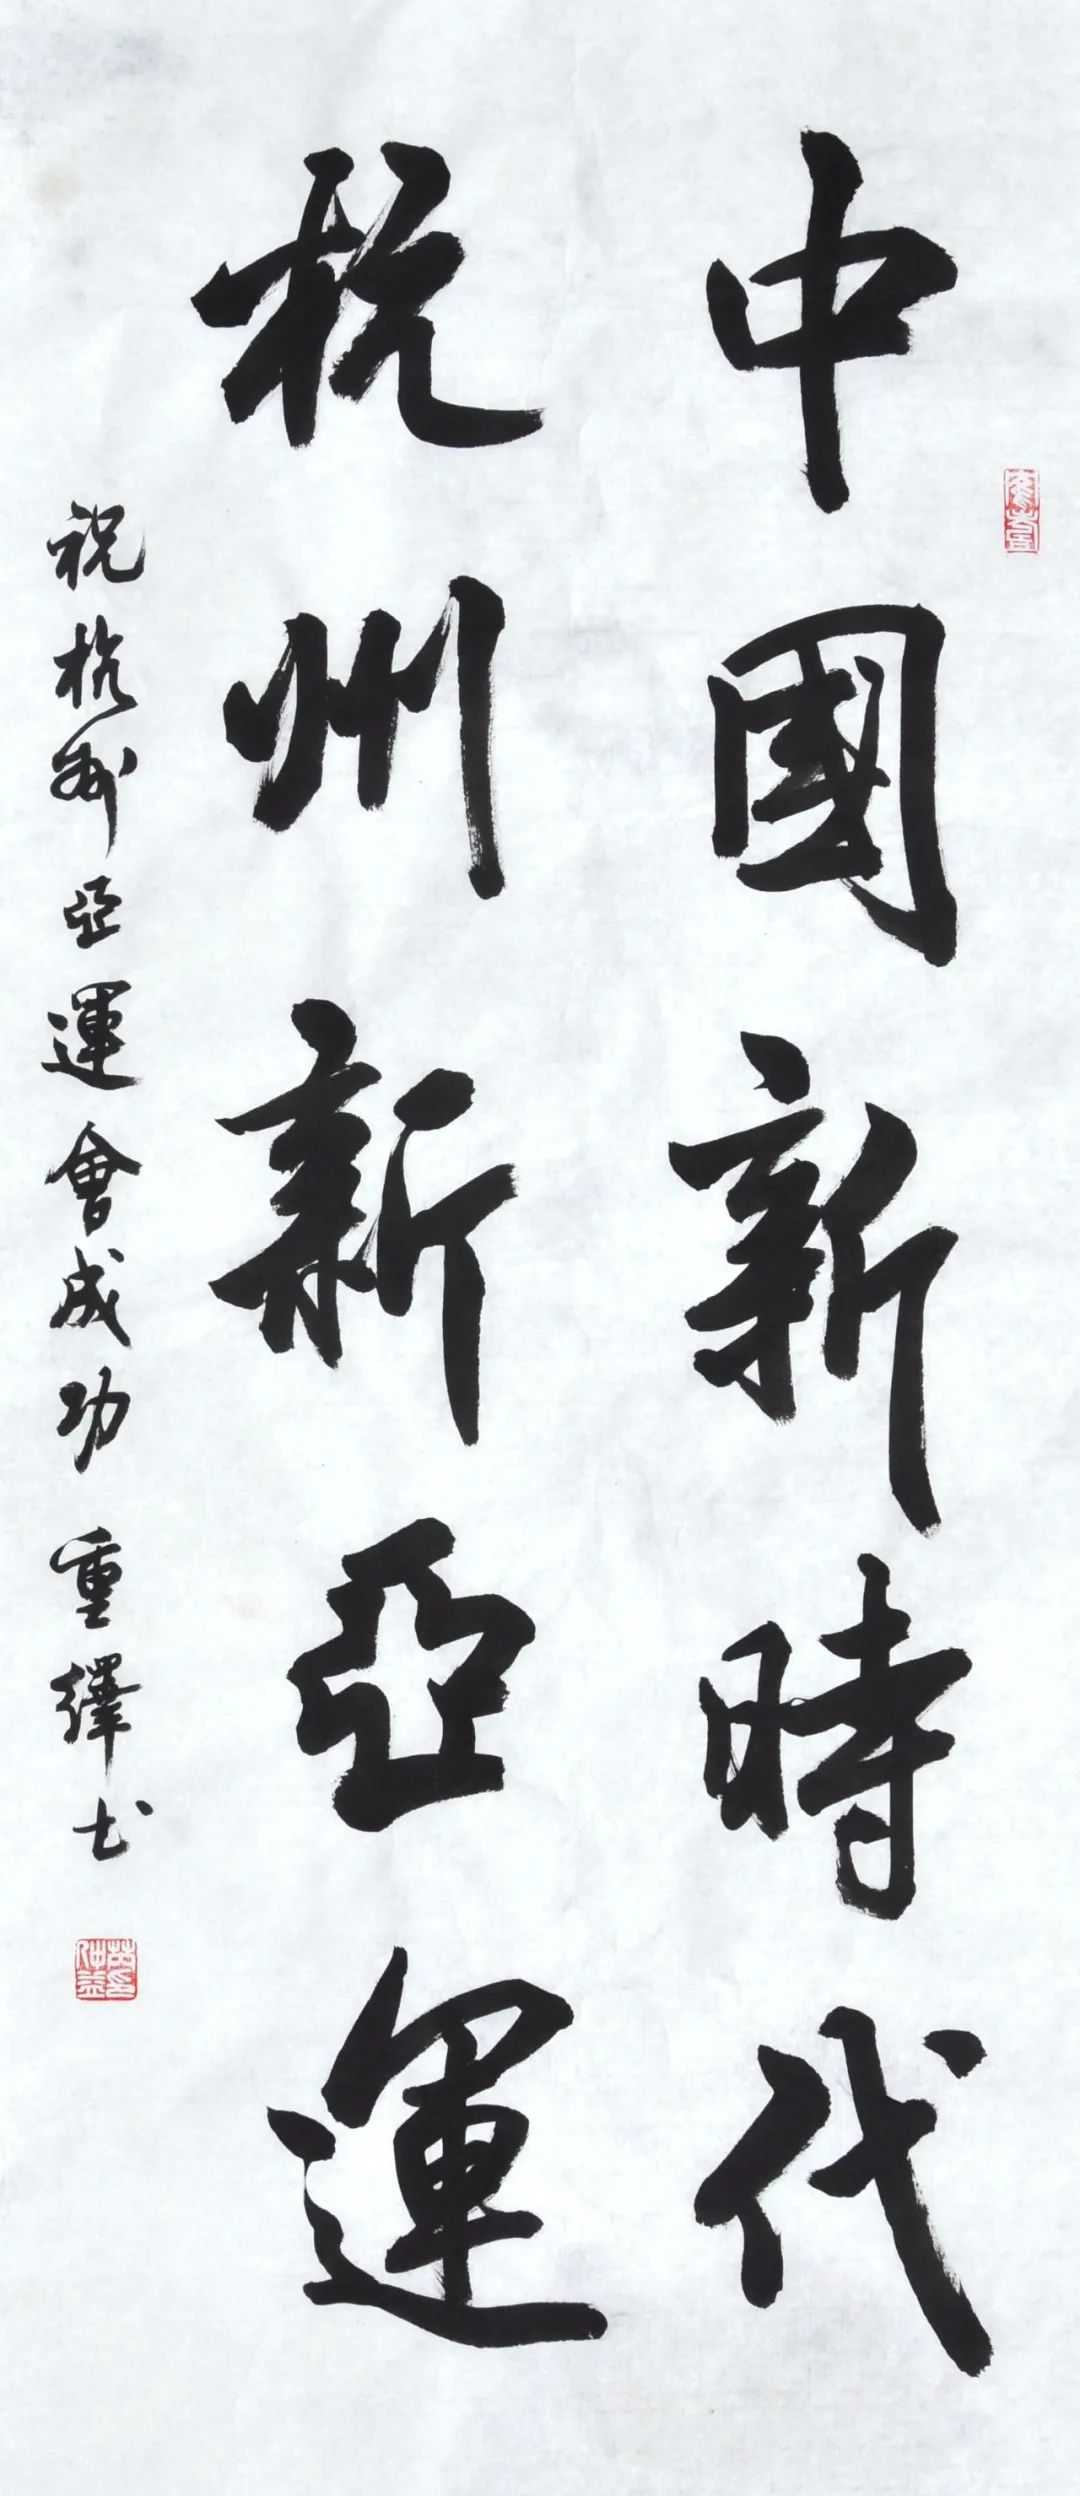 中國新時代
杭州新亞運
祝杭州亞運會成功 重繹书